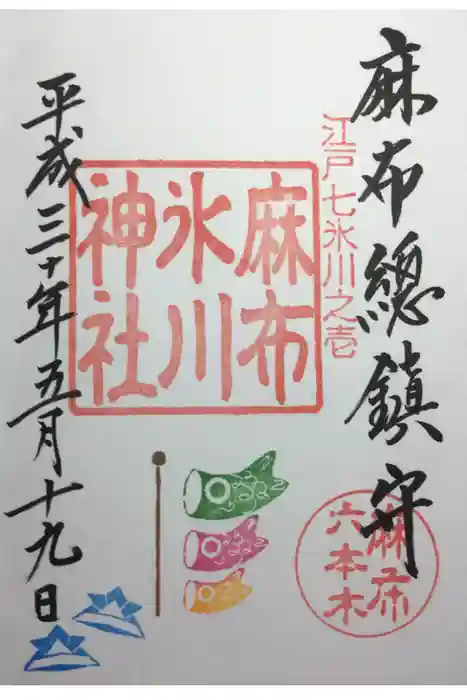 麻布總鎮守
江戸七氷川之壱
麻布
氷川
神社
麻布
六本木
平成三十年五月十九日